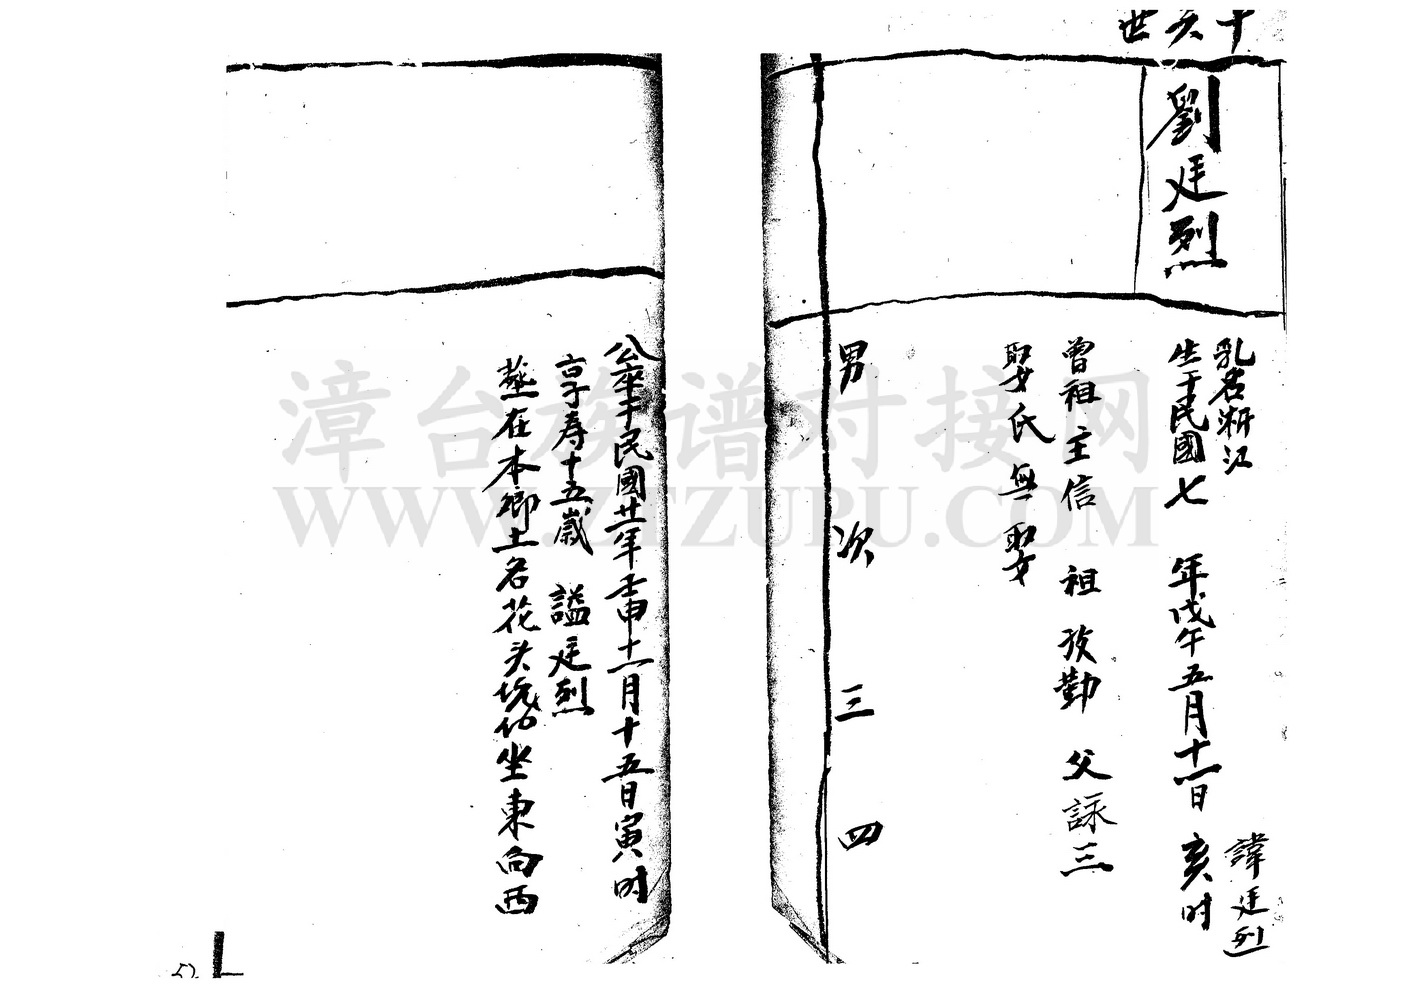 十六世
劉廷烈
乳名淅江 諱廷烈
生于民國七 年戊午五月十一日 亥时
曾祖主信 祖孜勤 父詠三
娶氏 無娶
男 次 三 四
公卒于民國廿一年壬申十一月十五日寅时
享寿十五歲 諡廷烈
塟在本鄉土名花头坑 坐東向西
漳台族谱对接网
WWW.ZTZUPU.COM
52